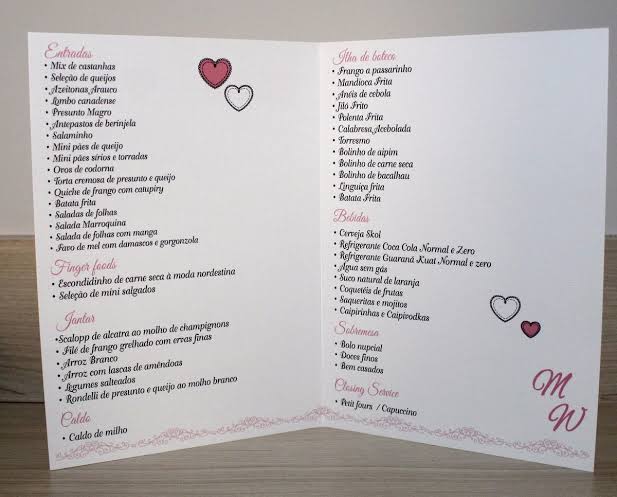 Entradas
• Mix de castanhas
• Seleção de queijos
• Azeitonas Arauco
• Lombo canadense
• Presunto Magro
• Antepastos de berinjela
• Salaminho
• Mini pães de queijo
• Mini pães sírios e torradas
• Ovos de codorna
• Torta cremosa de presunto e queijo
• Quiche de frango com catupiry
• Batata frita
• Saladas de folhas
• Salada Marroquina
• Salada de folhas com manga
• Favo de mel com damascos e gorgonzola
Finger foods
• Escondidinho de carne seca à moda nordestina
• Seleção de mini salgados
Jantar
• Scalopp de alcatra ao molho de champignons
• Filé de frango grelhado com ervas finas
• Arroz Branco
• Arroz com lascas de amêndoas
• Legumes salteados
• Rondelli de presunto e queijo ao molho branco
Caldo
• Caldo de milho
Ilha de boteco
• Frango a passarinho
• Mandioca Frita
• Anéis de cebola
• Jiló Frito
• Polenta Frita
• Calabresa Acebolada
• Torresmo
• Bolinho de aipim
• Bolinho de carne seca
• Bolinho de bacalhau
• Linguiça frita
• Batata Frita
Bebidas
• Cerveja Skol
• Refrigerante Coca Cola Normal e Zero
• Refrigerante Guaraná Kuat Normal e zero
• Água sem gás
• Suco natural de laranja
• Coquetéis de frutas
• Saqueritas e mojitos
• Caipirinhas e Caipivodkas
Sobremesa
• Bolo nupcial
• Doces finos
• Bem casados
Closing Service
• Petit fours / Capuccino
M
W